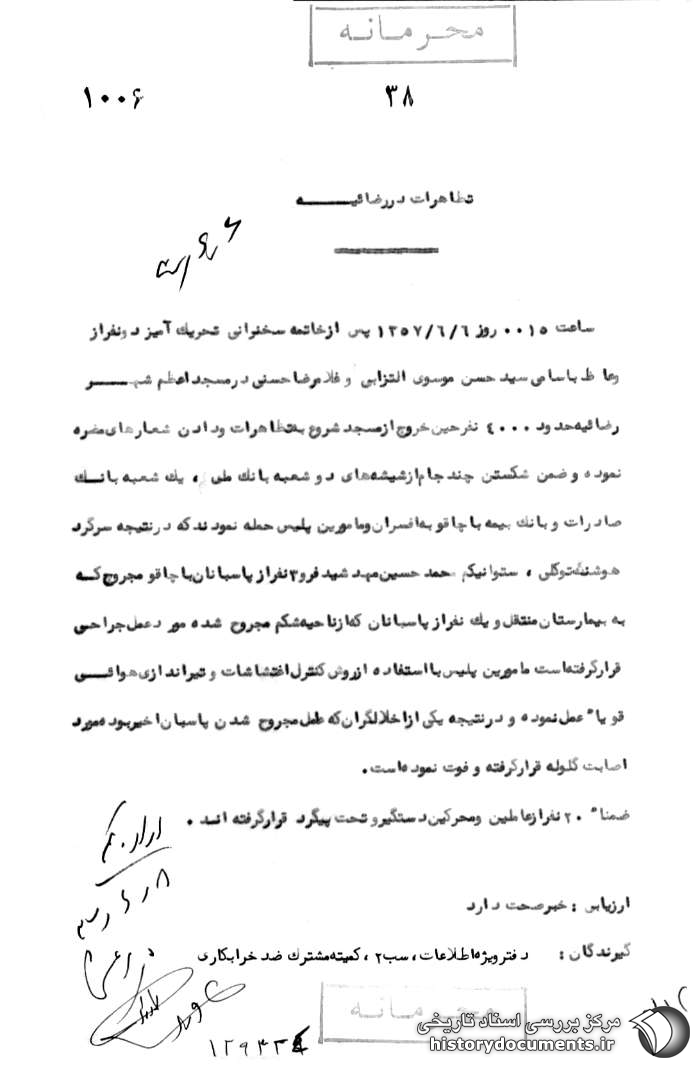 محرمانه
۳۸
۱۰۰۶
تظاهرات در رضائیه
ساعت ۰۰۱۵ روز ۱۳۵۷/۶/۶ پس از خاتمه سخنرانی تحریک آمیز دو نفر از
وعاظ باسامی سید حسن موسوی التزابی و غلامرضا حسنی در مسجد اعظم شهر
رضائیه حدود ۴۰۰۰ نفر حین خروج از مسجد شروع به تظاهرات و دادن شعارهای مضره
نموده و ضمن شکستن چند جام از شیشه‌های دو شعبه بانک ملی ، یک شعبه بانک
صادرات و بانک بیمه با چاقو به افسران و مامورین پلیس حمله نمودند که در نتیجه سرگرد
هوشنگ توکلی ، ستوانیکم محمد حسین مهد شید فر و ۳ نفر از پاسبانان با چاقو مجروح که
به بیمارستان منتقل و یک نفر از پاسبانان که از ناحیه شکم مجروح شده مورد عمل جراحی
قرار گرفته است مامورین پلیس با استفاده از روش کنترل اغتشاشات و تیراندازی هوائی
قویا" عمل نموده و در نتیجه یکی از اخلالگران که عامل مجروح شدن پاسبان اخیر بوده مورد
اصابت گلوله قرار گرفته و فوت نموده است.
ضمنا" ۲۰ نفر از عاملین و محرکین دستگیر و تحت پیگرد قرار گرفته اند .
ارزیابی : خبر صحت دارد
گیرندگان : دفتر ویژه اطلاعات ، سب ۲ ، کمیته مشترک ضد خرابکاری
محرمانه
مرکز بررسی اسناد تاریخی
historydocuments.ir